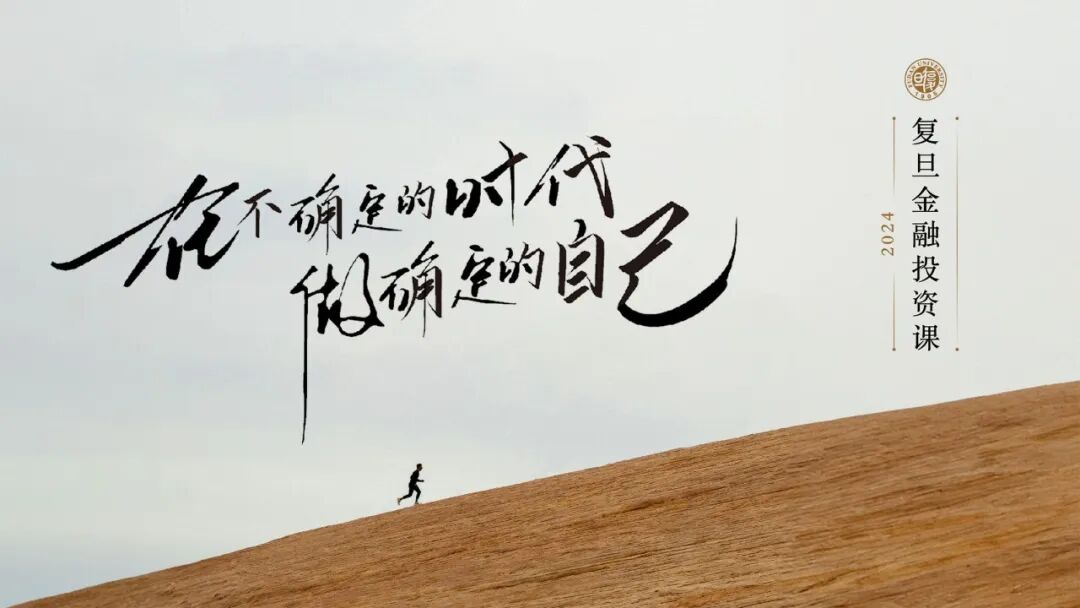 在不确定的时代
做确定的自己
FUDAN UNIVERSITY
1905
复旦金融投资课
2024